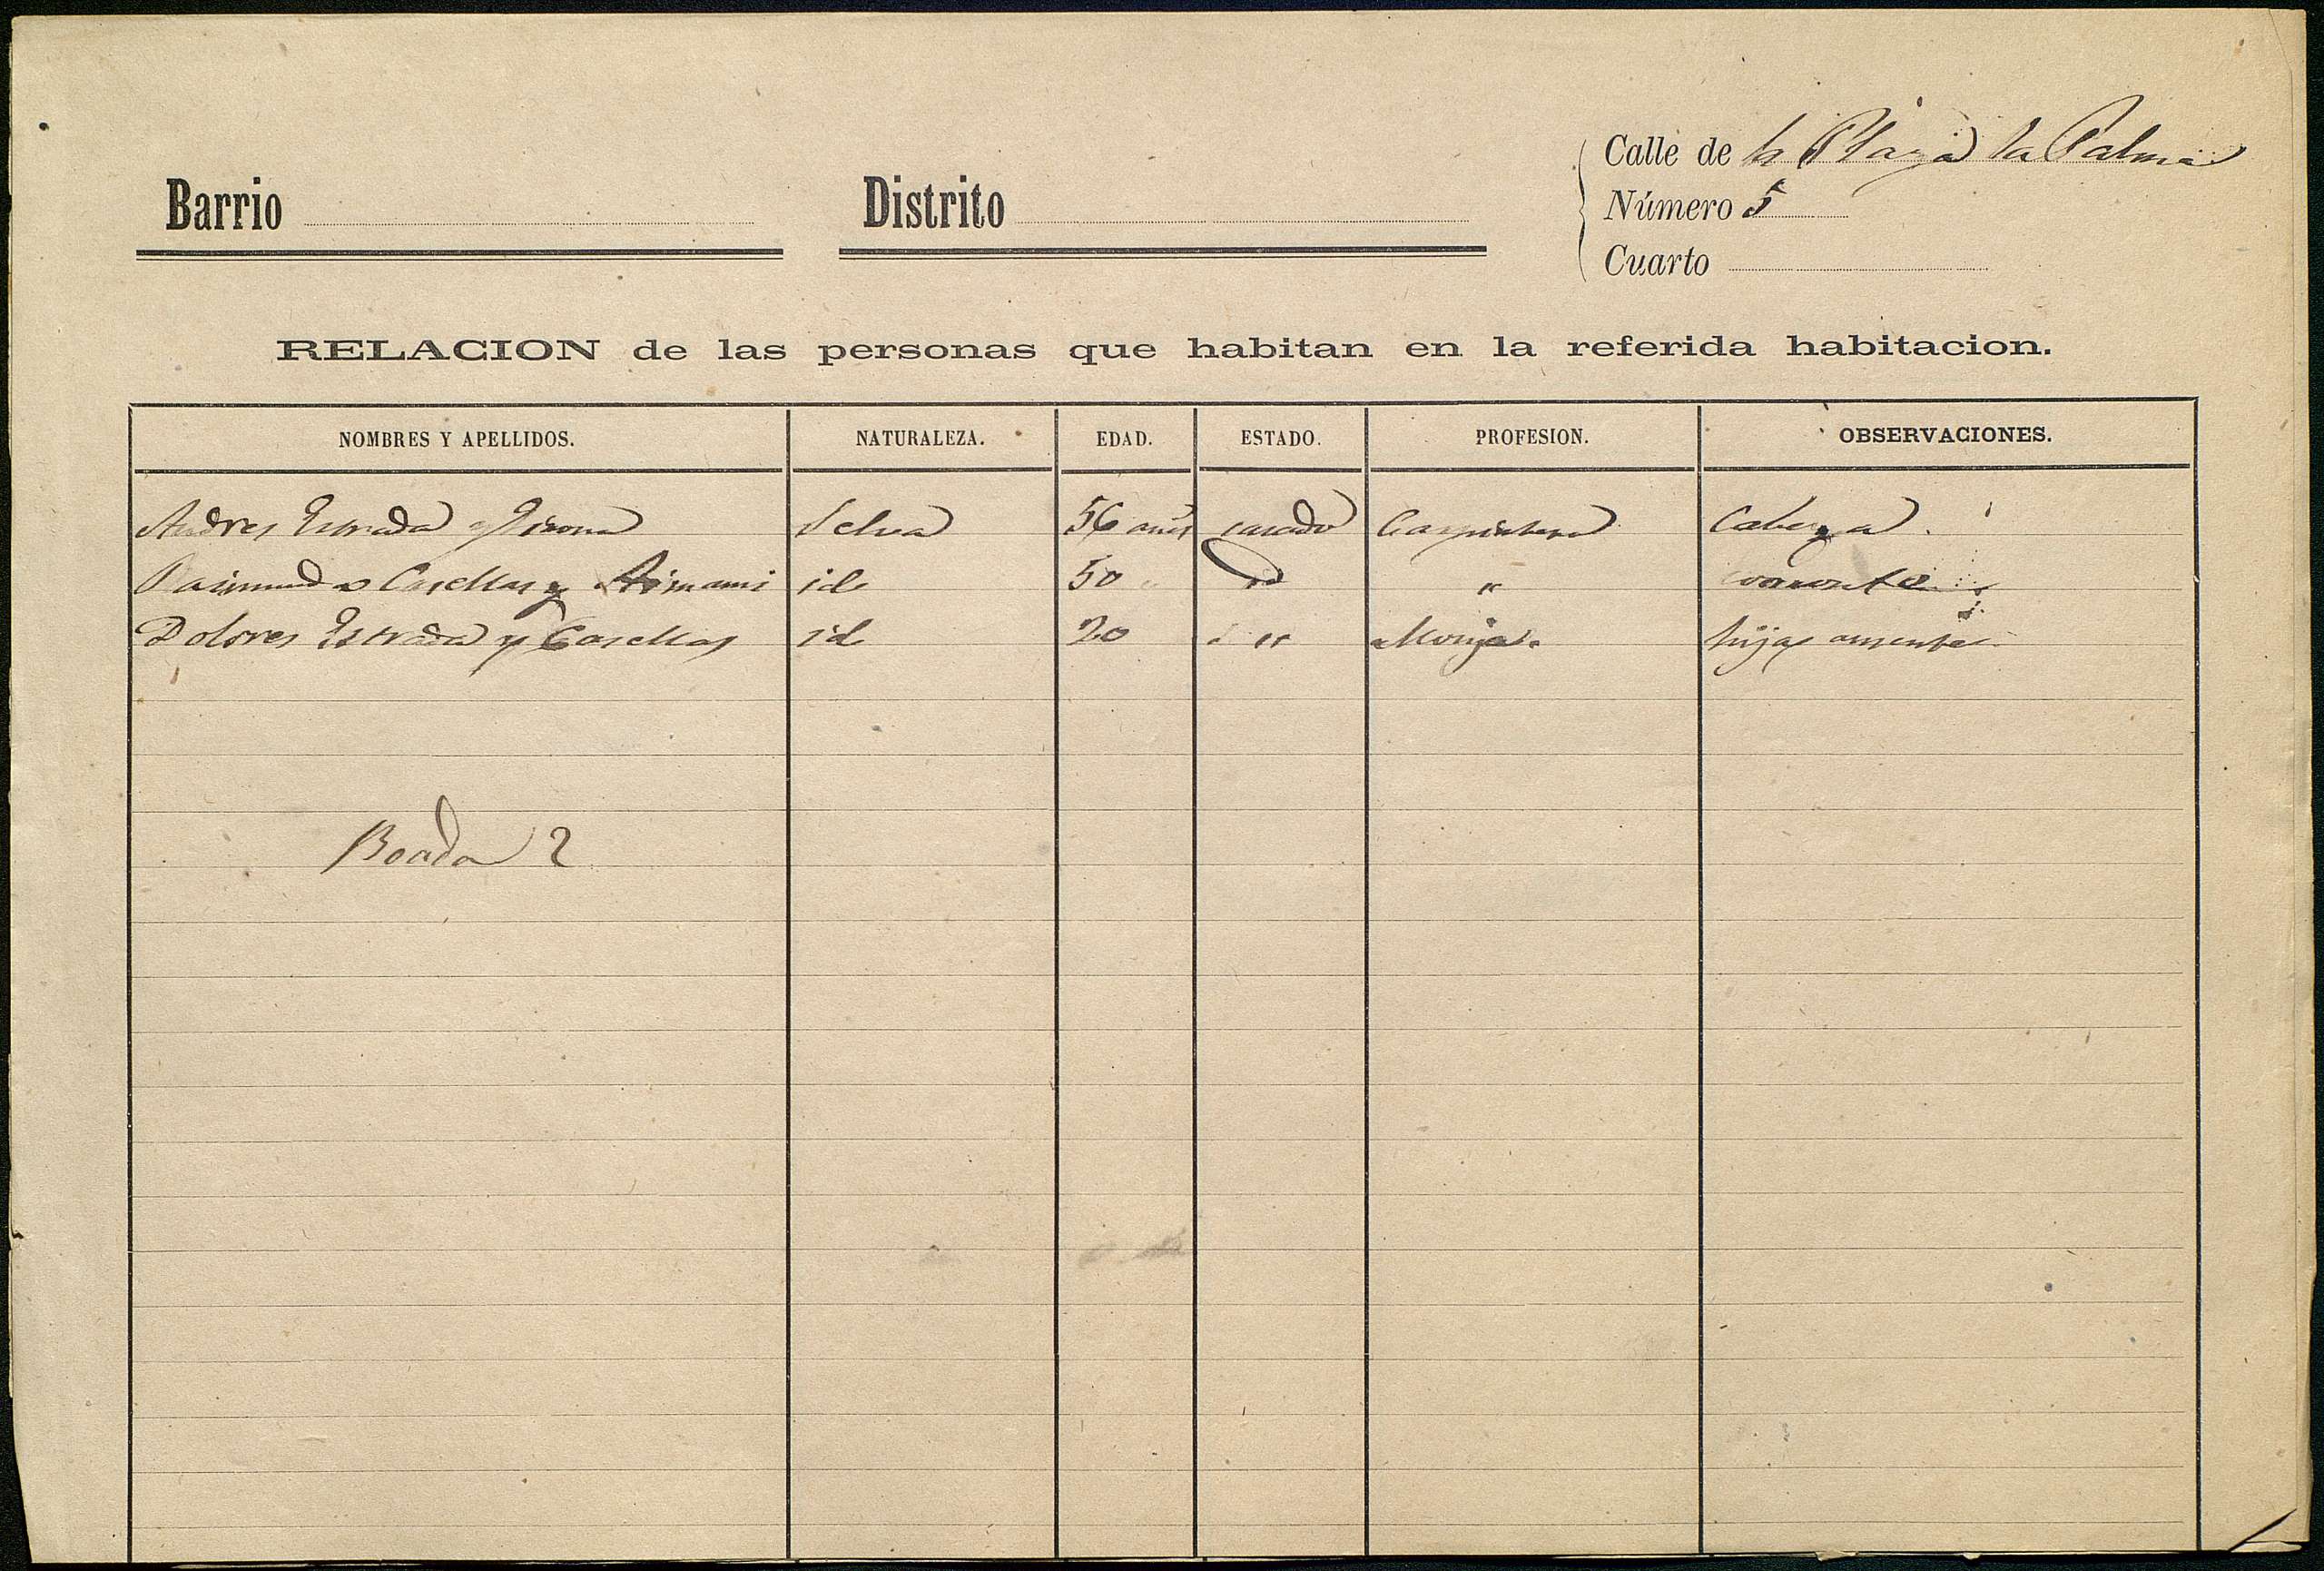 Calle de la Plaza la Palma
Barrio Distrito Número 5
Cuarto
RELACION de las personas que habitan en la referida habitacion.
NOMBRES Y APELLIDOS. NATURALEZA. EDAD. ESTADO. PROFESION. OBSERVACIONES.
Andres Estrada y Girona Selva 56 años casado Carpintero Cabeza.
Raimunda Casellas y id 50 " " consorte
Dolores Estrada y Casellas id 20 " Monja. hija ausente
Boada 2